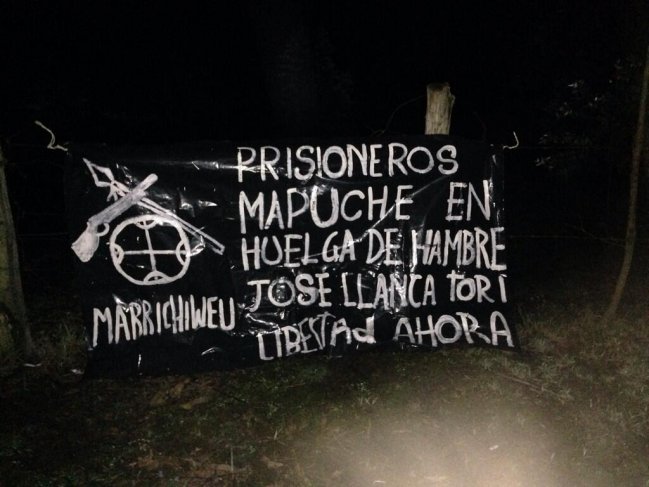 PRISIONEROS
MAPUCHE EN
HUELGA DE HAMBRE
JOSE LLANCA TORI
LIBERTAd AHORA
MARRICHIWEU